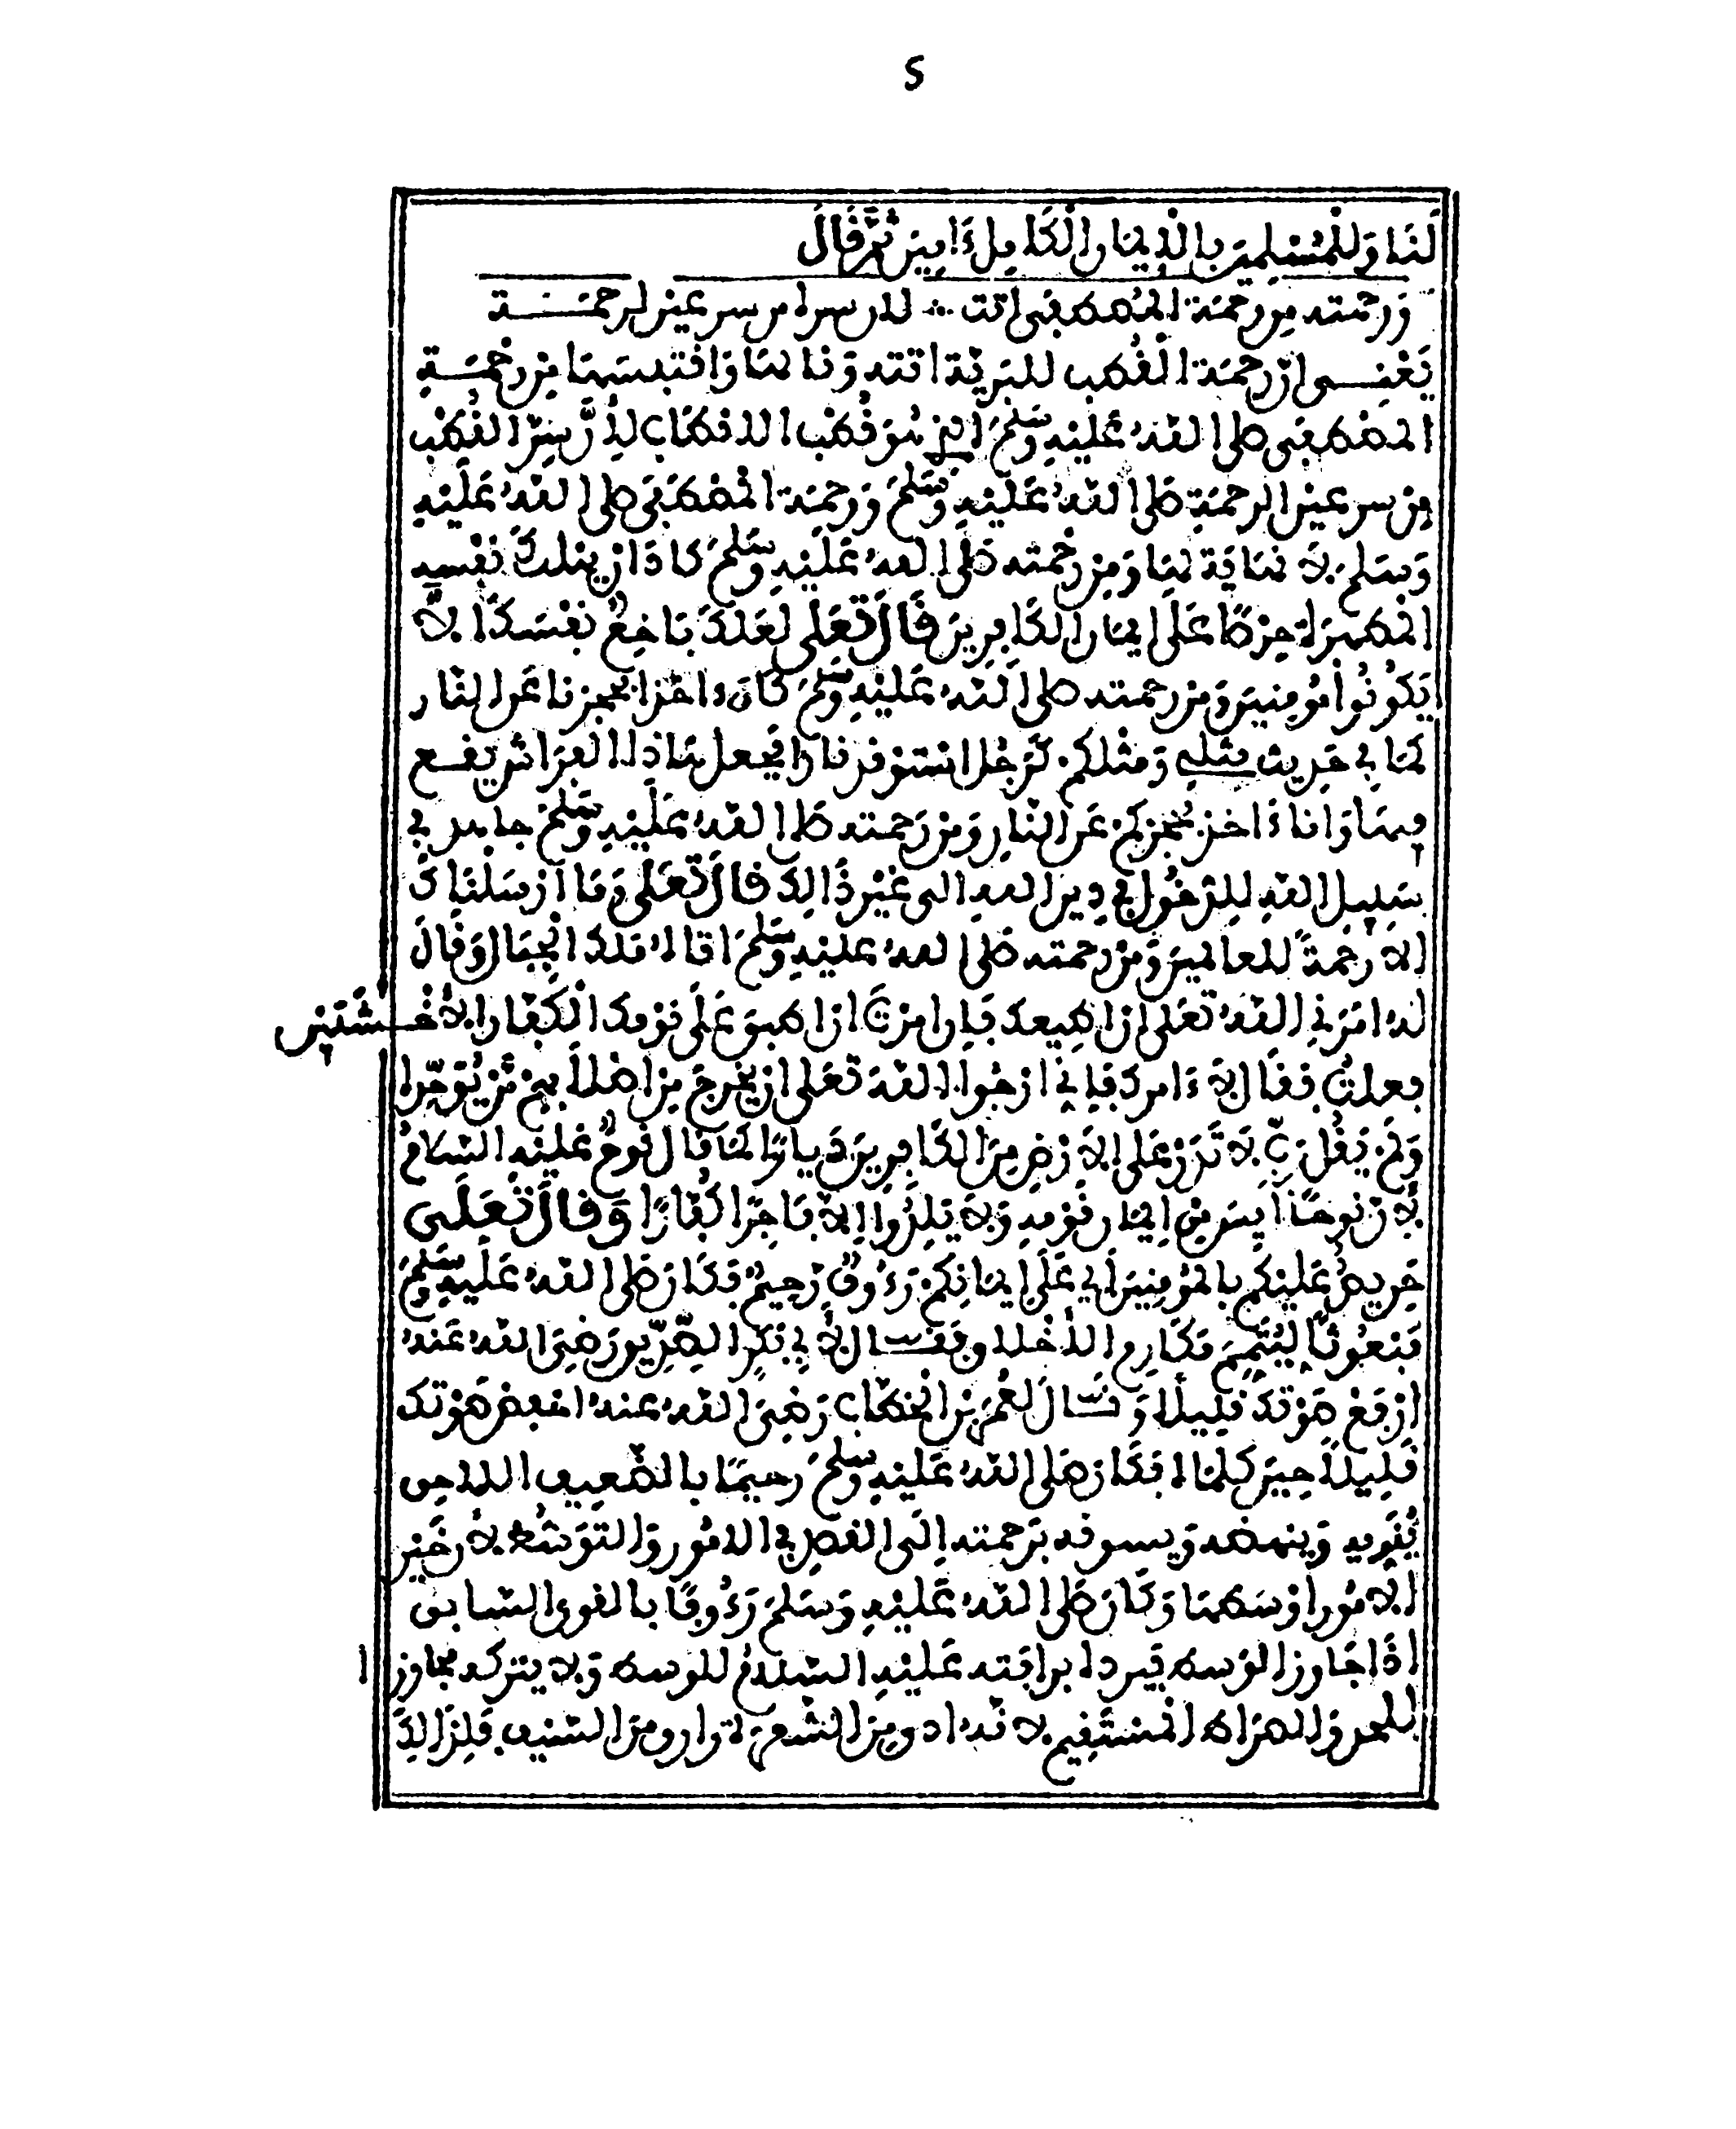 5
لَنَا وَلِلْمُسْلِمِينَ بِالْإِيمَانِ الْكَامِلِ ءَامِينَ ثُمَّ قَالَ
وَرَحْمَته مِن رَحْمَة المُصطفى اتت ∴ لان سرا من سر عين الرحمَـة
يَعْنِـى ان رحمَة القُطب للبَرية اتته وَنَالنا وَاقتبسَها مِن رحْمَـةِ
المصْطفى صلى اللهُ عَلَيْهِ وَسَلَّمَ الذى هُوَ قُطْب الاقطاب لِأنَّ سِرّ القُطْب
مِن سر عين الرحمَةِ صَلى اللهُ عَلَيْهِ وَسَلَّمَ وَرَحمَة المُصْطَفَى صلى اللهُ عَلَيْهِ
وَسَلَّم لا نهَايَة لهَا وَمِن رحْمته صَلى اللهُ عَلَيْهِ وَسَلَّمَ كادَ ان يهْلك نفْسهِ
المُطهرَة حِرْصًا عَلَى ايمَان الكَافِرِينَ قَالَ تَعَلَى لَعَلَّكَ بَاخِعٌ نفْسَكَ الَّا
يَكُونُوا مُومِنِينَ وَمِن رحمته صلى اللهُ عَلَيْهِ وَسَلَّمَ كانَ ءاخذا بحُجزنا عَن النَّار
كمَا فِى حَدِيث مثلِى وَمثلكم كرَجُل استوقد نارا فجعل هَاذا الفرَاش يقـع
فِيهَا وَانا ءَاخذ بحُجزكم عَن النَّارِ وَمِن رَحمته صَلى اللهُ عَلَيْهِ وَسَلَّمَ جاهد فى
سَبِيل اللهِ لِلدّخُول فِى دِين اللهِ الى غيْر ذَالِكَ قالَ تَعَلَى وَمَا أرْسَلْنَاكَ
الا رحمةً للعالمِينَ وَمِن رحمته صَلى اللهُ عليْهِ وَسَلَّمَ اتاهُ مَلك الجِبَال وَقَالَ
لهُ امَرَنِى اللهُ تعَلى ان اطيعك فَإن امرْتَنِى ان اطبق عَلى قوْمك الكفار الأخْـشَبَيْنِ
فعلتُ فقَال لا ءَامرك فإنى ارْجُوا اللهَ تَعَلى ان يخْرجَ مِن اصْلابهِم مَّن يُوَحّدا
وَلَمْ يَقُلْ رَبِّ لَا تَذَرْ عَلَى الارْضِ مِنَ الكَافِرِينَ دَيَارًا كمَا قَال نُوحٌ عَلَيْهِ السَّلَامُ
لأنّ نوحًا أيِسَ مِن إيمَان قوْمهِ وَلَا يَلِدُوا إِلَّا فَاجِرًا كَفَّارًا وَقَالَ تَعَلَـى
حَرِيصٌ عَلَيْكُم بالمُؤْمِنِينَ أى عَلَى إيمَانِكُمْ رَءُوفٌ رَحِيمٌ فكَانَ صَلى اللهُ عَلَيْهِ وَسَلَّمَ
مَبْعُوثًا لِيُتَمِّمَ مَكَارِم الأخْلاق فقـال لأبِى بَكْرٍ الصّدِّيق رَضِىَ اللهُ عَنهُ
ارْفَعْ صَوْتَكَ قَلِيلًا وَقـالَ لعُمَر بْن الخطاب رَضِىَ اللهُ عنه اخفِض صَوْتك
قَلِيلًا حِينَ كلمَاهُ فكَان صَلى اللهُ عَلَيْهِ وَسَلَّمَ رحِيمًا بالضَّعِيف اللاحِق
يُقَوِيهِ وَينهضه وَيسوقه برَحمته إلَى القصْدِ فِى الامُور وَالتوَسُّطِ لأن خَيْر
الامُور اوْسَطهَا وَكَان صَلى اللهُ عَلَيْهِ وَسَلَمَ رَءُوفًا بالقوىِ السَّابق
اذَا جَاوز الوَسط فيَردهُ برافته عَلَيْهِ السَّلَامُ للوسط وَلا يتركه مجاوزا
للحق والصرَاط المُسْتَقِيم لانهُ ادق مِنَ الشَّعَرَة واروق مِنَ السَّيْفِ فَلِذَالِكَ